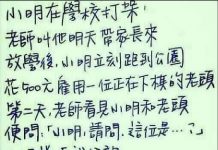 小明在學校打架，
老師叫他明天帶家長來
放學後，小明立刻跑到公園
花500元雇用一位正在下棋的老頭
第二天，老師看見小明和老頭
便問：「小明，請問，這位是…？」